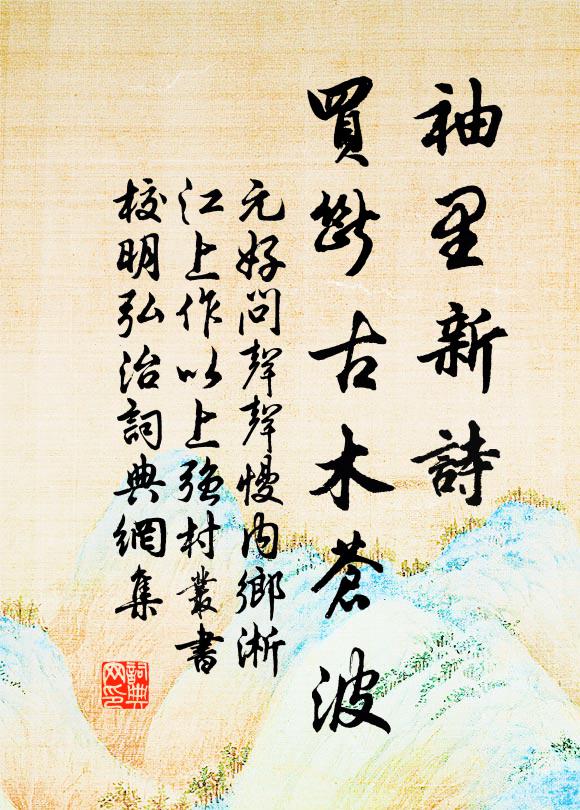 袖里新詩
買斷古木蒼波
元好問聲聲慢内鄉淅
江上作以上強村叢書
校明弘治詞典網集
詞典
网印